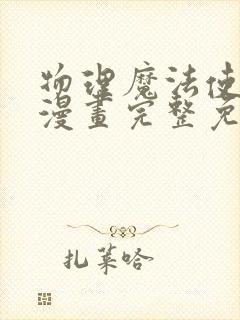 物理魔法使
漫畫完整免
扎萊哈